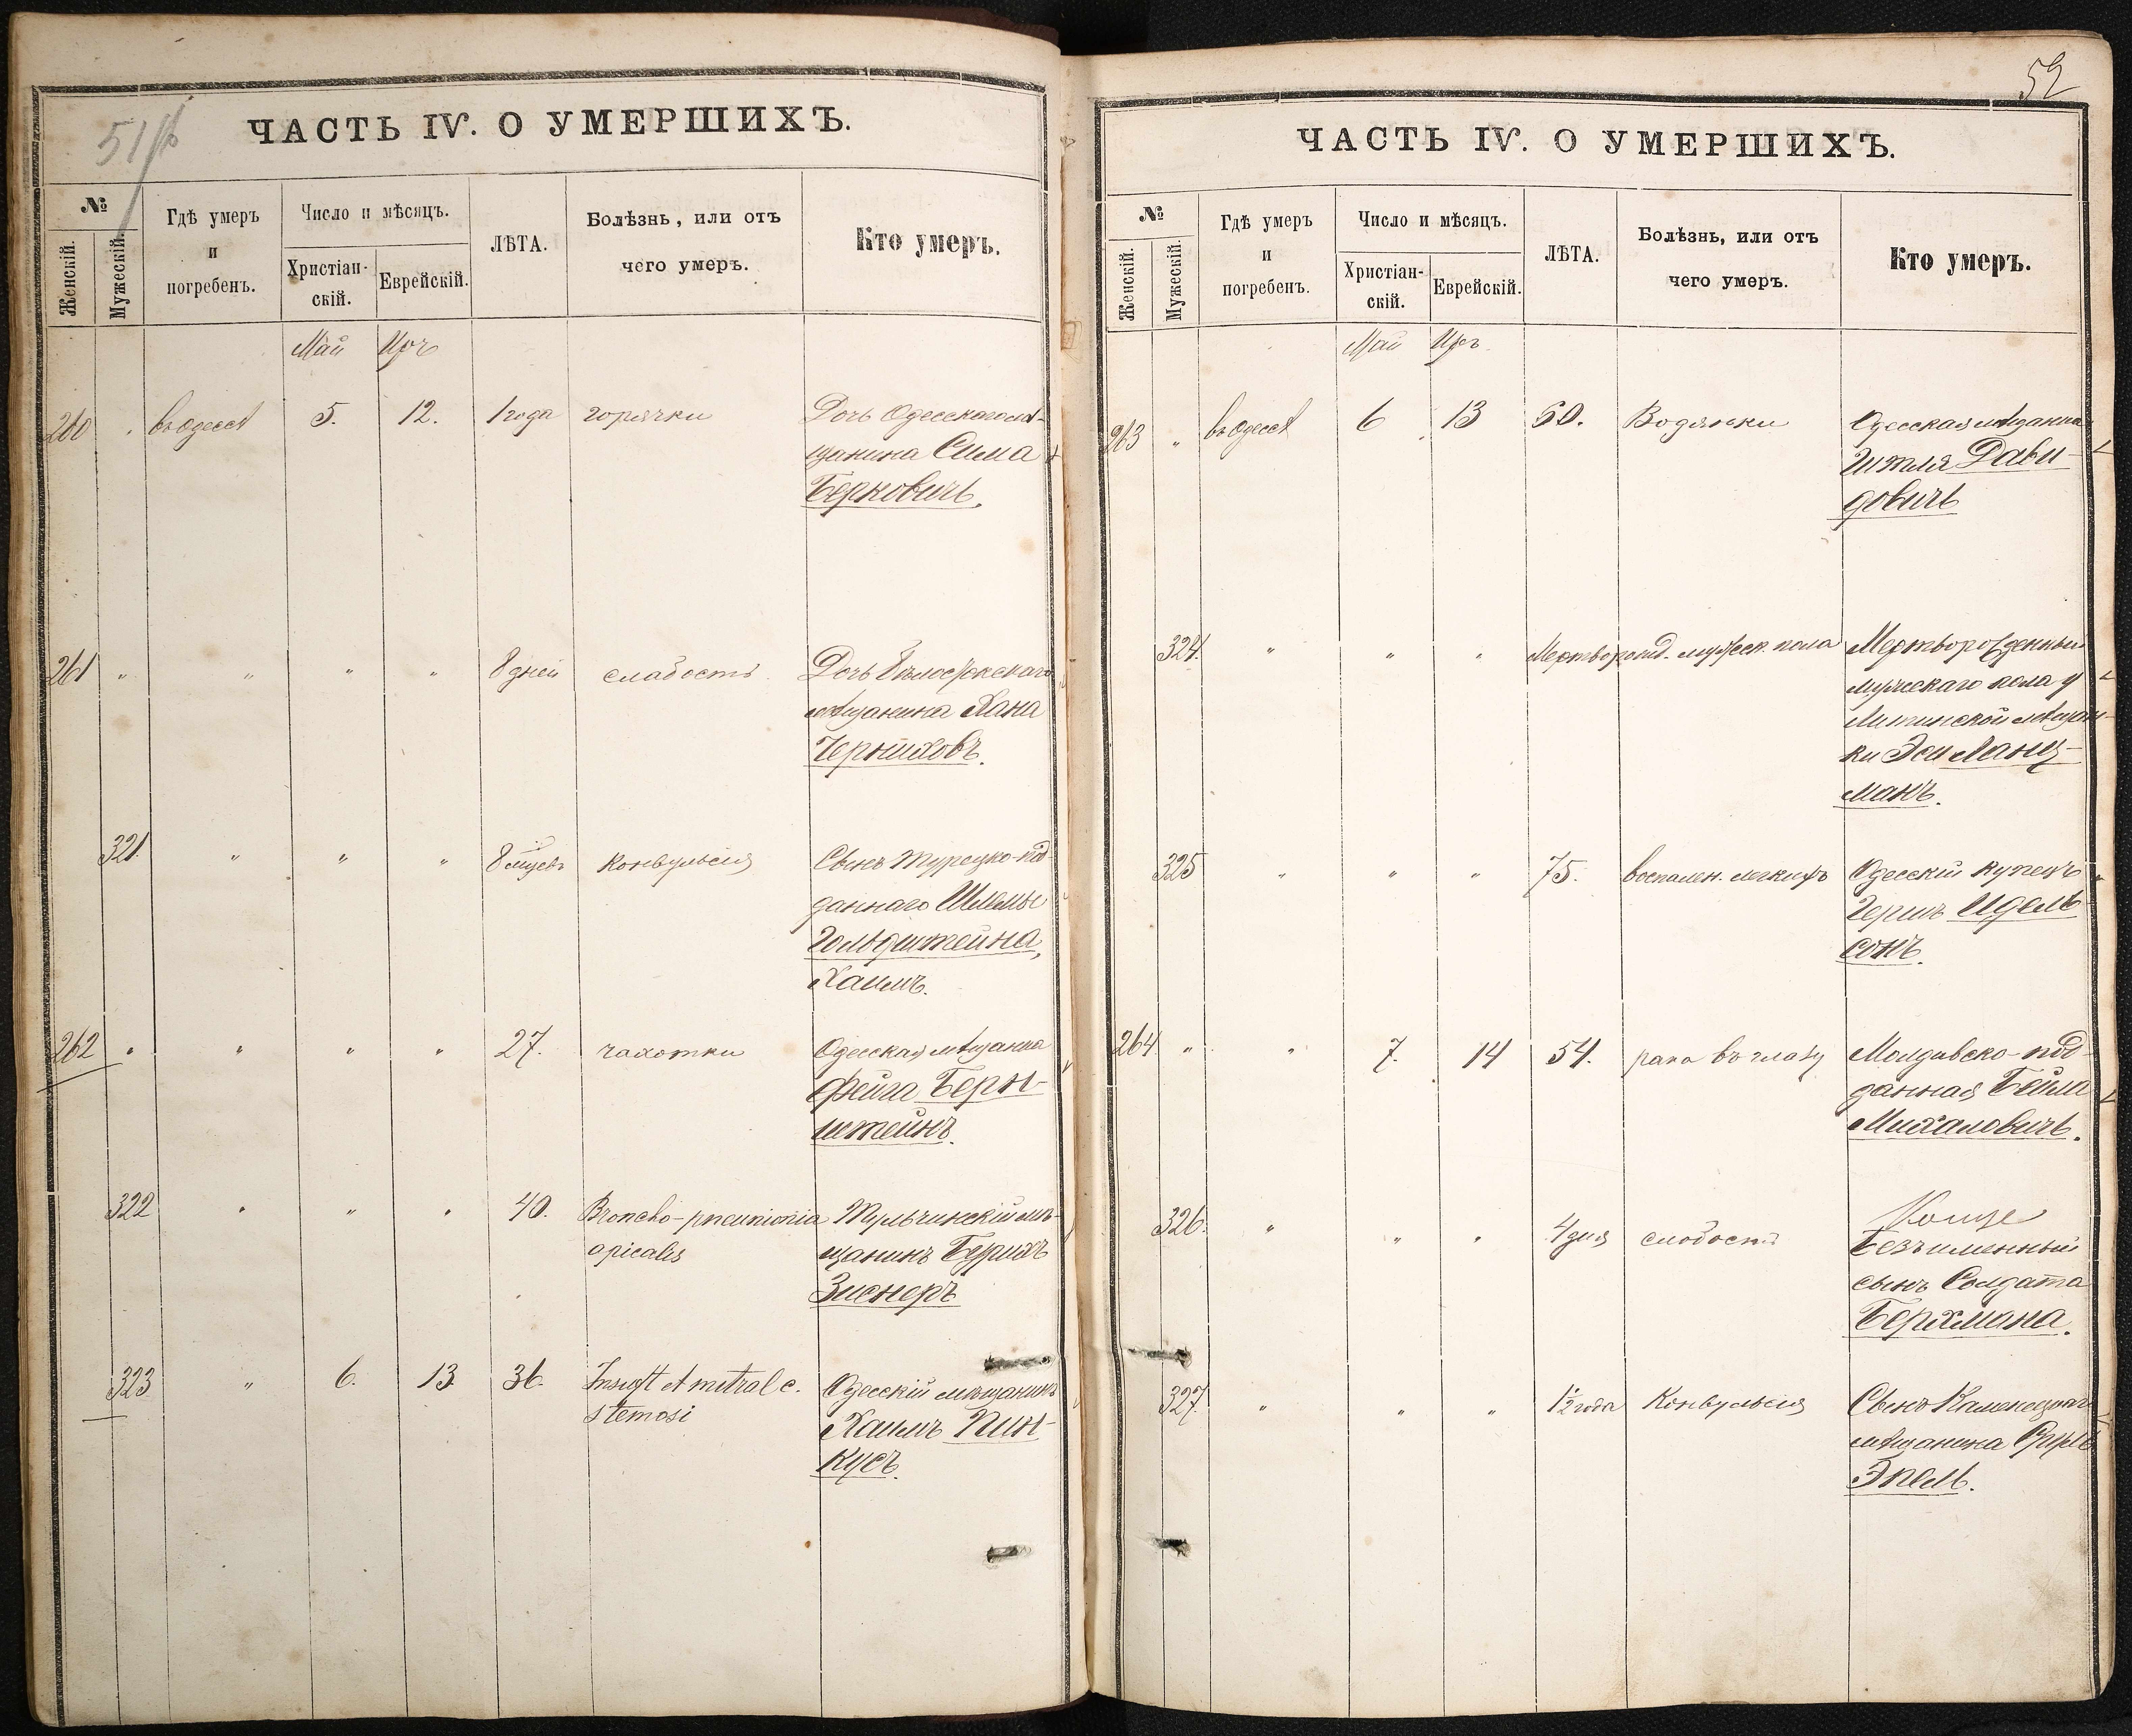 51
ЧАСТЬ IV. О УМЕРШИХЪ.
№
Женскій.
Мужескій.
Гдѣ умеръ
и
погребенъ.
Число и мѣсяцъ.
Христіан-
скій.
Еврейскій.
ЛѢТА.
Болѣзнь, или отъ
чего умеръ.
Кто умеръ.
Май Иръ
260 " въ Одессѣ 5. 12. 1 года горячки Дочь Одесскаго мѣ-
щанина Сима
Берковичъ.
261 " " " " 8 дней слабость Дочь
мѣщанина Хана
Черниховъ.
321. " " " 8 мцевъ конвульсія Сынъ Турецко-под-
даннаго Шлемы
Гольдштейна,
Хаимъ.
262 " " " " 27. чахотки Одесская мѣщанка
Фейга Берн-
штейнъ.
322 " " " 40. Broncho-pneumonia Тульчинскій мѣ-
apicalis щанинъ
323 " 6. 13. 36. Одесскій мѣщанинъ
Хаимъ Пин-
кусъ.
52
ЧАСТЬ IV. О УМЕРШИХЪ.
№
Женскій.
Мужескій.
Гдѣ умеръ
и
погребенъ.
Число и мѣсяцъ.
Христіан-
скій.
Еврейскій.
ЛѢТА.
Болѣзнь, или отъ
чего умеръ.
Кто умеръ.
Май Иръ
263 " въ Одессѣ 6 13 60. Водянки Одесская мѣщанка
Давы-
довичъ
324. " " " Мертворожд. мужеск. пола Мертворожденный
мужескаго пола у
Литинской мѣщан-
ки Эси Ланц-
манъ.
325 " " " 75. воспален. легкихъ Одесскій купецъ
Гершъ Идель-
сонъ.
264 " " 7. 14 54. рака въ глазу Молдавско-под-
данная Бейла
Михаловичъ.
326. " " " 4 дня слабость
Безъименный
сынъ Солдата
Берхмана.
327. " " " 1½ года Конвульсія Сынъ
мѣщанина
Эпель.